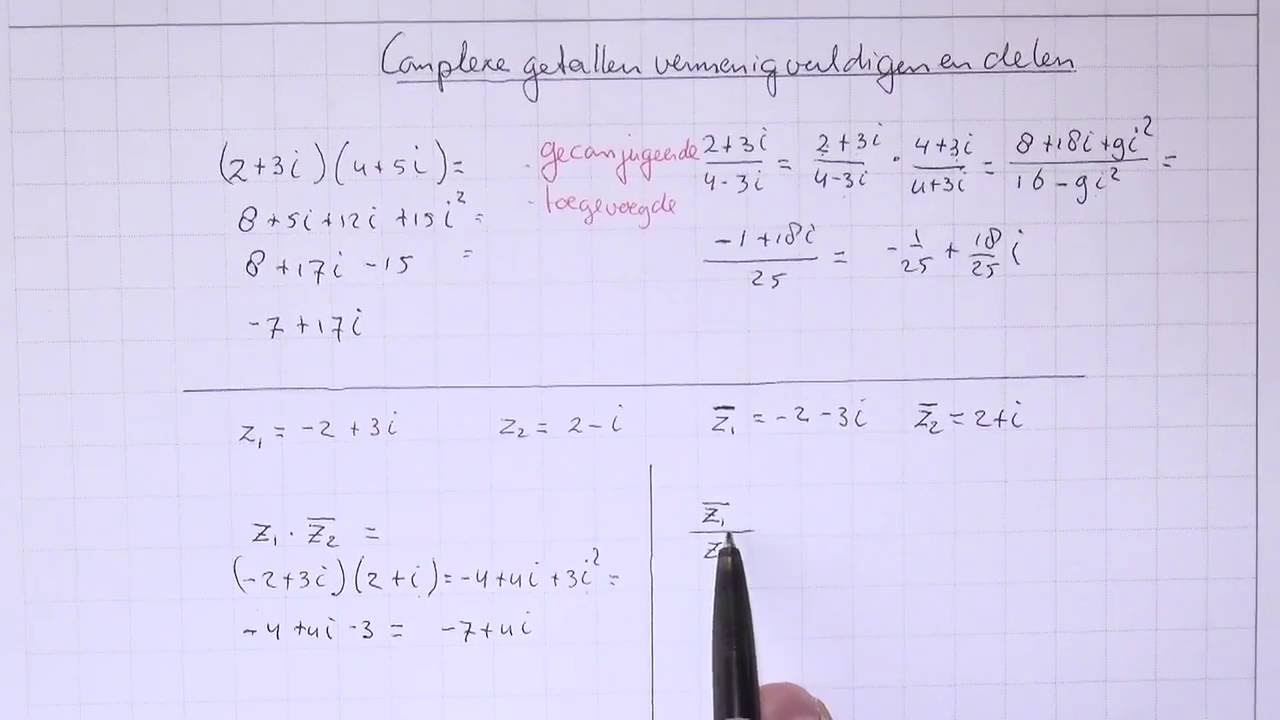 Complexe getallen vermenigvuldigen en delen
(2+3i)(4+5i)=
8+5i+12i+15i²=
8+17i-15 =
-7+17i
· geconjugeerde
· toegevoegde
(2+3i)/(4-3i) = (2+3i)/(4-3i) · (4+3i)/(4+3i) = (8+18i+9i²)/(16-9i²) =
(-1+18i)/25 = -1/25 + 18/25 i
z₁ = -2+3i z₂ = 2-i z̄₁ = -2-3i z̄₂ = 2+i
z₁ · z̄₂ =
(-2+3i)(2+i)=-4+4i+3i²=
-4+4i-3 = -7+4i
z̄₁
z